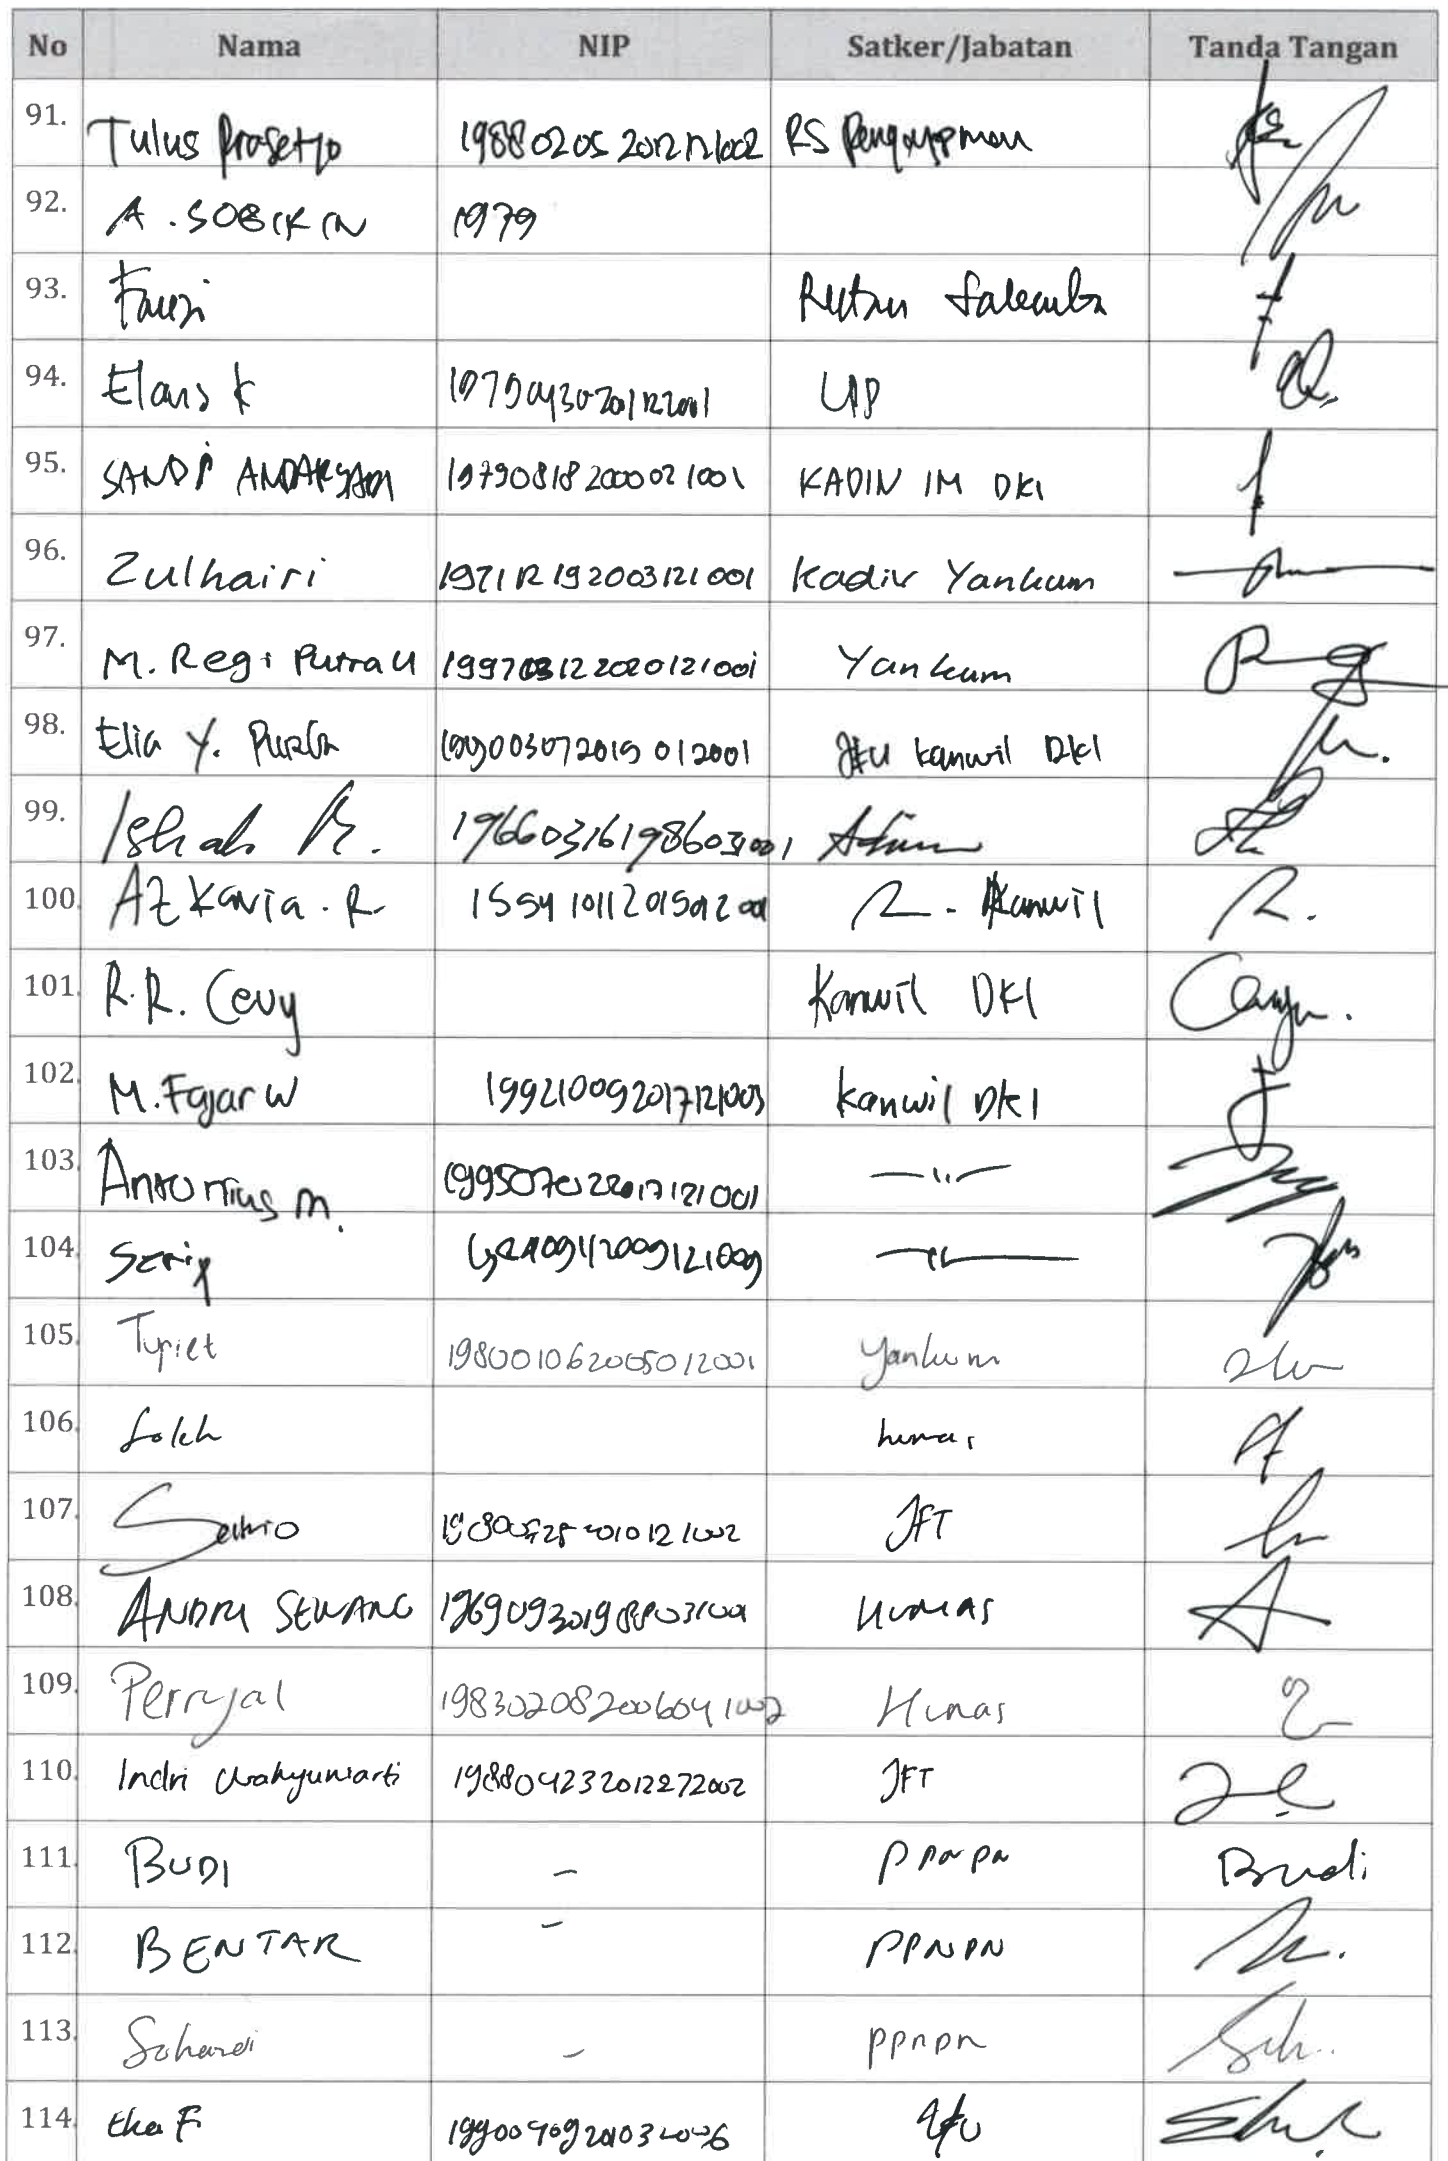 No Nama NIP Satker/Jabatan Tanda Tangan
91. Tulus Prasetyo 19880205 201212 1002 RS Pengayoman
92. A. SOBIKIN 1979
93. Fauzi Rutan Salemba
94. Elans K
95. SANDI ANDARYADI 19790818 200002 1001 KADIV IM DKI
96. Zulhairi 19711219 200312 1001 Kadiv Yankum
97. M. Regi Putra U 19970312 2020121001 Yankum
98. Elia Y. Purba 199003072015 012001 JFU Kanwil DKI
99. 196603161986031001
100. AZ Kavia. R Kanwil
101. R.R. Cevy Kanwil DKI
102. M. Fajar W 199210092017121003 Kanwil DKI
103. Antonius M. 199507022017121001 —〃—
104. —〃—
105. Tupiet 198001062005012001 Yankum
106. Soleh humas
107. JFT
108. ANDRI SEWANG 196909301988031001 HUMAS
109. Perryal 198302082006041002 Humas
110. Indri Wahyuniarti JFT
111. BUDI - PPNPN Budi
112. BENTAR - PPNPN
113. Sohardi - PPNPN
114. Eka F JFU